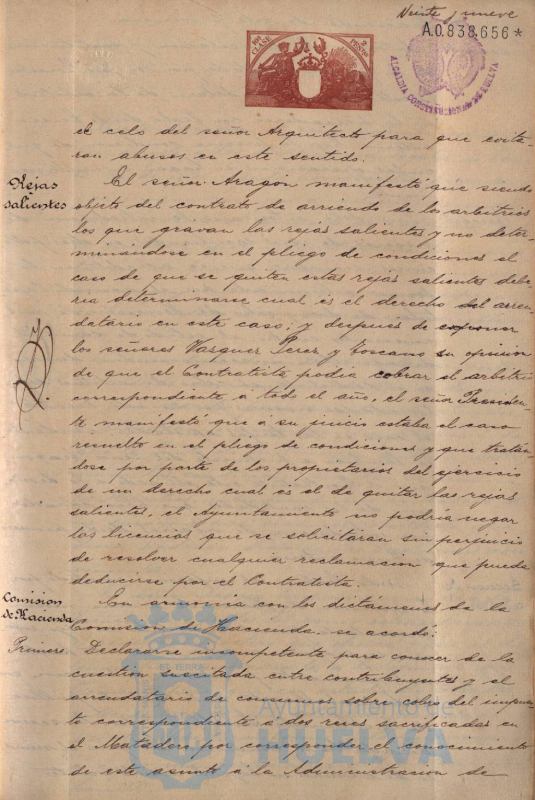 Veinte y nueve
A.0.838,656*
10ª CLASE
2 PESETAS
ALCALDIA CONSTITUCIONAL DE HUELVA
el celo del señor Arquitecto para que evita-
ran abusos en este sentido.
Rejas
salientes
El señor Aragón manifestó que siendo
objeto del contrato de arriendo de los arbitrios
los que gravan las rejas salientes y no deter-
minándose en el pliego de condiciones el
caso de que se quiten estas rejas salientes debe-
ria determinarse cual es el derecho del arren-
datario en este caso; y despues de exponer
los señores Vazquez Perez y Toscano su opinion
de que el Contratista podia cobrar el arbitrio
correspondiente á todo el año, el señor Presiden-
te manifestó que á su juicio estaba el caso
resuelto en el pliego de condiciones y que tratan-
dose por parte de los propietarios del ejercisio
de un derecho cual es el de quitar las rejas
salientes, el Ayuntamiento no podria negar
las licencias que se solicitaran sin perjuicio
de resolver cualquier reclamacion que pueda
deducirse por el Contratista.
Comision
de Hacienda
En armonia con los dictámenes de la
Comision de Hacienda se acordó:
Primero. Declararse incompetente para conocer de la
cuestion suscitada entre contribuyentes y el
arrendatario de consumos sobre cobro del impues-
to correspondiente á dos reses sacrificadas en
el Matadero por corresponder el conocimiento
de este asunto á la Administracion de
Ayuntamiento de
HUELVA